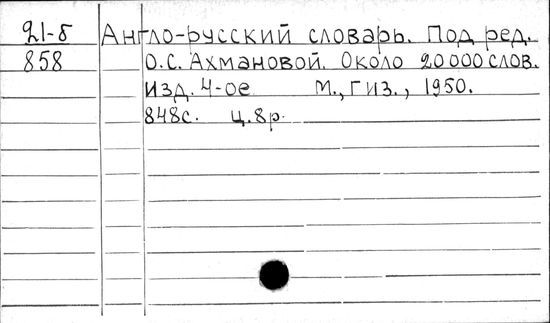 21-б Англо-русский словарь. Под ред.
858 О.С. Ахмановой. Около 20 000 слов.
Изд. 4-ое М., ГИЗ., 1950.
848с. Ц. 8р.